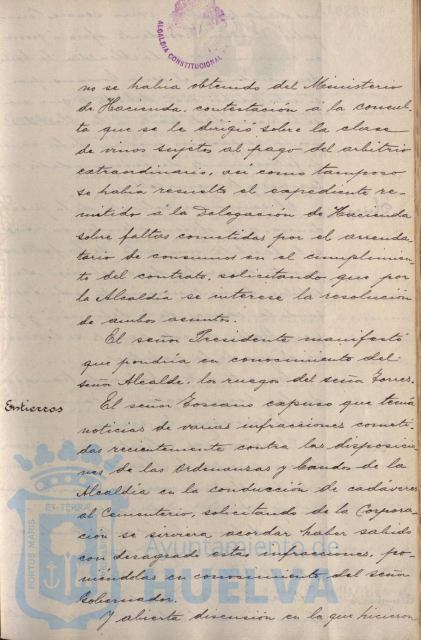 ALCALDÍA CONSTITUCIONAL
no se había obtenido del Ministerio
de Hacienda, contestación á la consul-
ta que se le dirigió sobre la clase
de vinos sujetos al pago del arbitrio
extraordinario, así como tampoco
se había resuelto el expediente re-
mitido á la Delegación de Hacienda
sobre faltas cometidas por el arrenda-
tario de consumos en el cumplimien-
to del contrato, solicitando que por
la Alcaldía se interese la resolución
de ambos asuntos.
El señor Presidente manifestó
que pondría en conocimiento del
señor Alcalde, los ruegos del señor Torres.
Entierros
El señor Toscano expuso que tenía
noticias de varias infracciones cometi-
das recientemente contra las disposicio-
nes de las Ordenanzas y bandos de la
Alcaldía en la conducción de cadáveres
al Cementerio, solicitando de la Corpora-
ción se sirviera acordar haber sabido
con desagrado estas infracciones, po-
niéndolas en conocimiento del señor
Gobernador.
Y abierta discusión en la que hicieron
PORTUS MARIS
ET TERRÆ
Ayuntamiento de
HUELVA